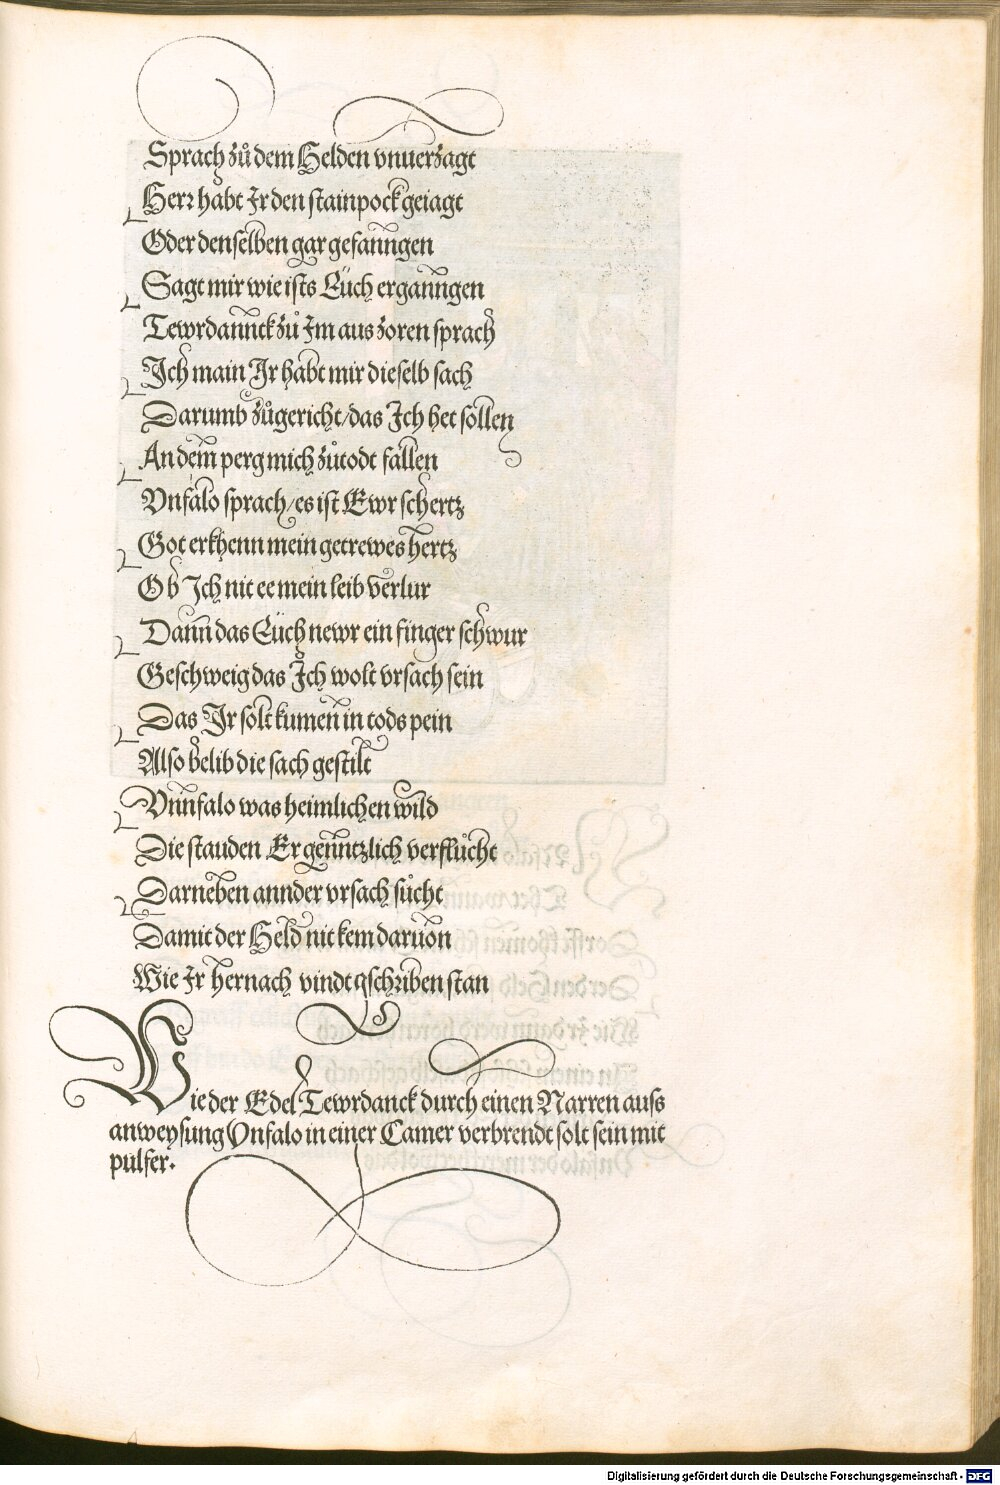 Sprach zů dem Helden vnuerzagt
Herr habt Ir den stainpock geiagt
Oder denselben gar gefanngen
Sagt mir wie ists Euch erganngen
Tewrdannck zů Im aus zoren sprach
Ich main Ir habt mir dieselb sach
Darumb zůgericht/das Ich het sollen
An dem perg mich zůtodt fallen
Vnfalo sprach/es ist Ewr schertz
Got erkhenn mein getrewes hertz
Ob Ich nit ee mein leib verlur
Dann das Euch newr ein finger schwur
Geschweig das Ich wolt vrsach sein
Das Ir solt kumen in tods pein
Also belib die sach gestilt
Vnnfalo was heimlichen wild
Die stauden Er genntzlich verflůcht
Darneben annder vrsach sůcht
Damit der Held nit kem daruon
Wie Ir hernach vindt gschriben stan
Wie der Edel Tewrdanck durch einen Narren auss
anweysung Vnfalo in einer Camer verbrendt solt sein mit
pulfer.
Digitalisierung gefördert durch die Deutsche Forschungsgemeinschaft - DFG